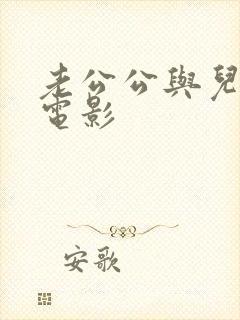 老公公與兒
電影
安歌